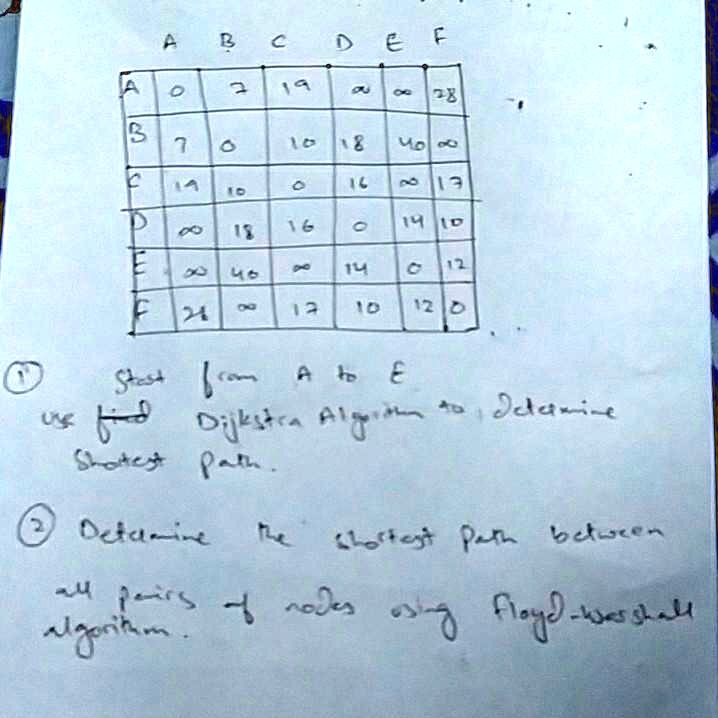 A B C D E F
A 0 7 19 ∞ ∞ 28
B 7 0 10 18 40 ∞
C 19 10 0 16 ∞ 17
D ∞ 18 16 0 14 10
E ∞ 40 ∞ 14 0 12
F 28 ∞ 17 10 12 0
① Start from A to E
use find Dijkstra Algorithm to determine
Shortest path.
② Determine the shortest path between
all pairs of nodes using Floyd-warshall
algorithm.